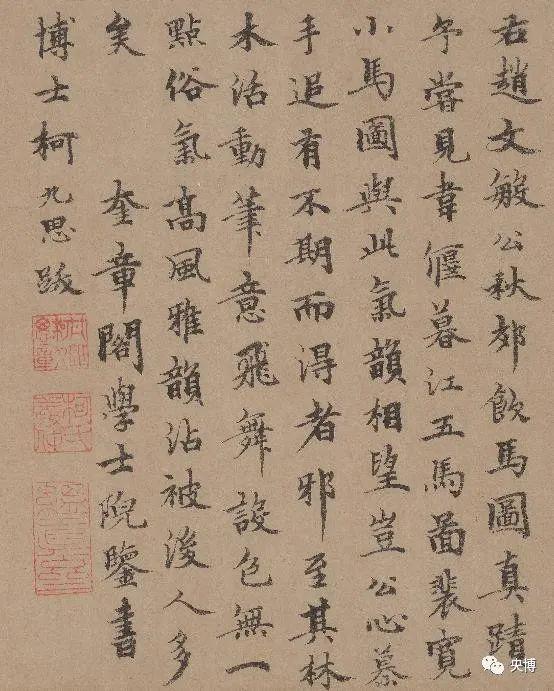 右趙文敏公秋郊飲馬圖真蹟
予嘗見韋偃暮江五馬啚裴寬
小馬圖與此氣韻相望豈公心慕
手追有不期而得者邪至其林
木活動筆意飛舞設色無一
點俗氣高風雅韻沾被後人多
矣　奎章閣學士院鑒書
博士柯九思跋
央博